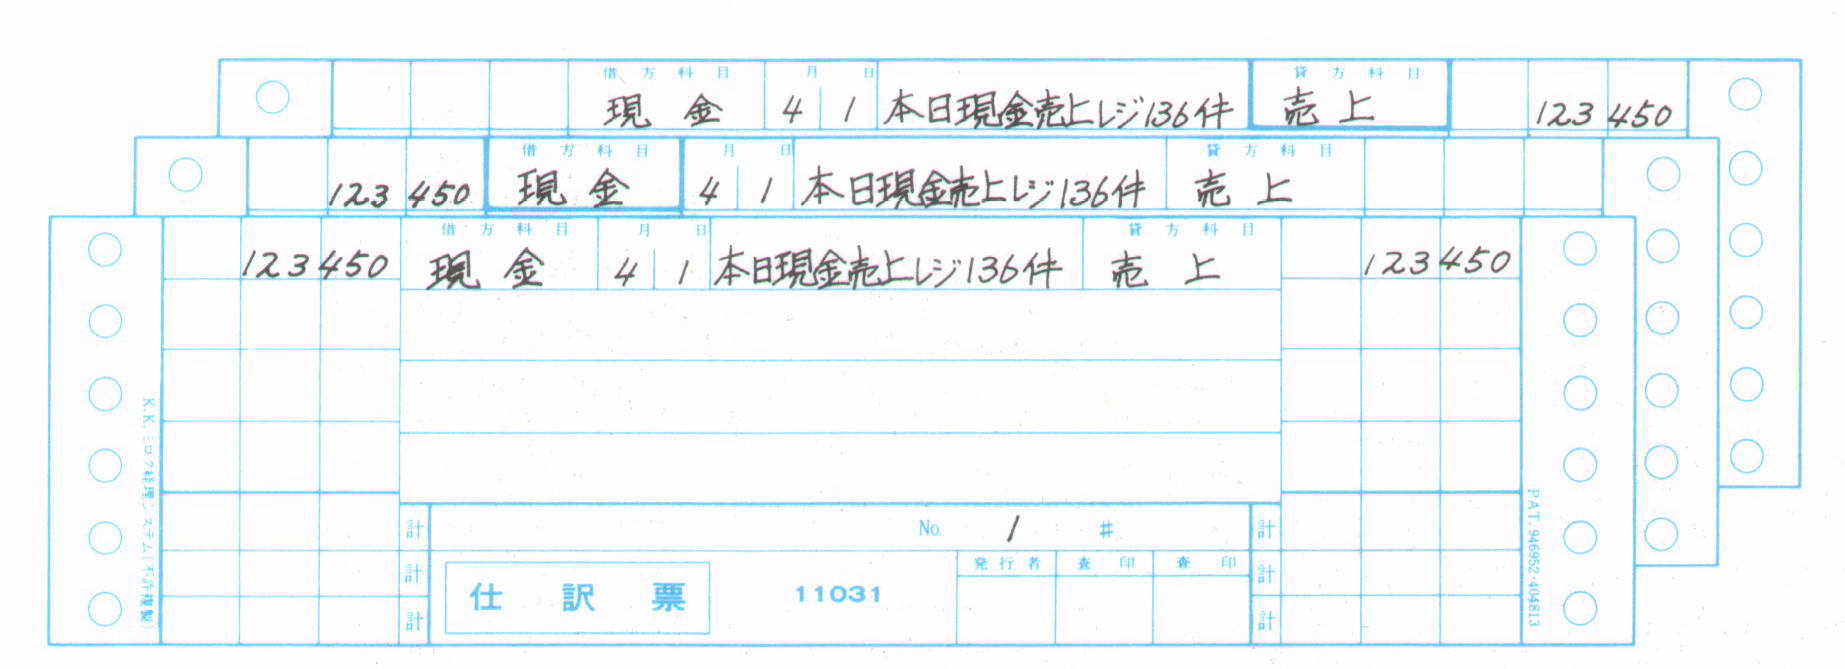 借方科目 月 日 貸方科目
現金 4 1 本日現金売上レジ136件 売上 123 450
借方科目 月 日 貸方科目
123 450 現金 4 1 本日現金売上レジ136件 売上
借方科目 月 日 貸方科目
123 450 現金 4 1 本日現金売上レジ136件 売上 123 450
計 No. 1 # 計
発行者 査印 査印
計 仕訳票 11031 計
計 計
K.K.ミロク経理システム(不許複製)
PAT.946952・404813